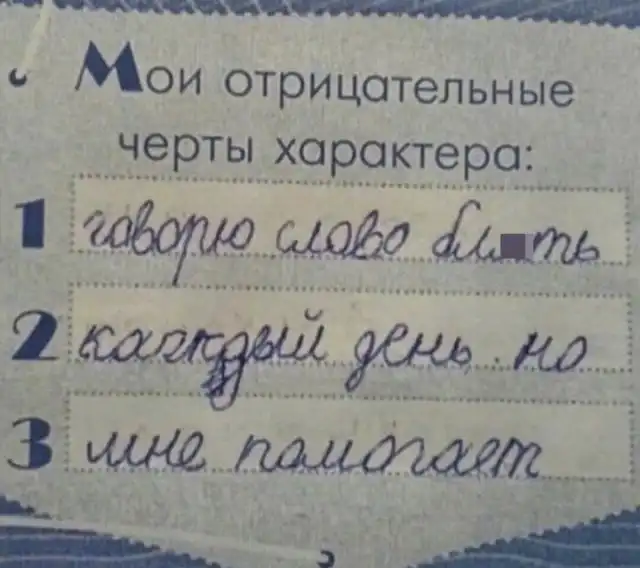 Мои отрицательные
черты характера:
1 говорю слово бл ть
2 каждый день но
3 мне помогает